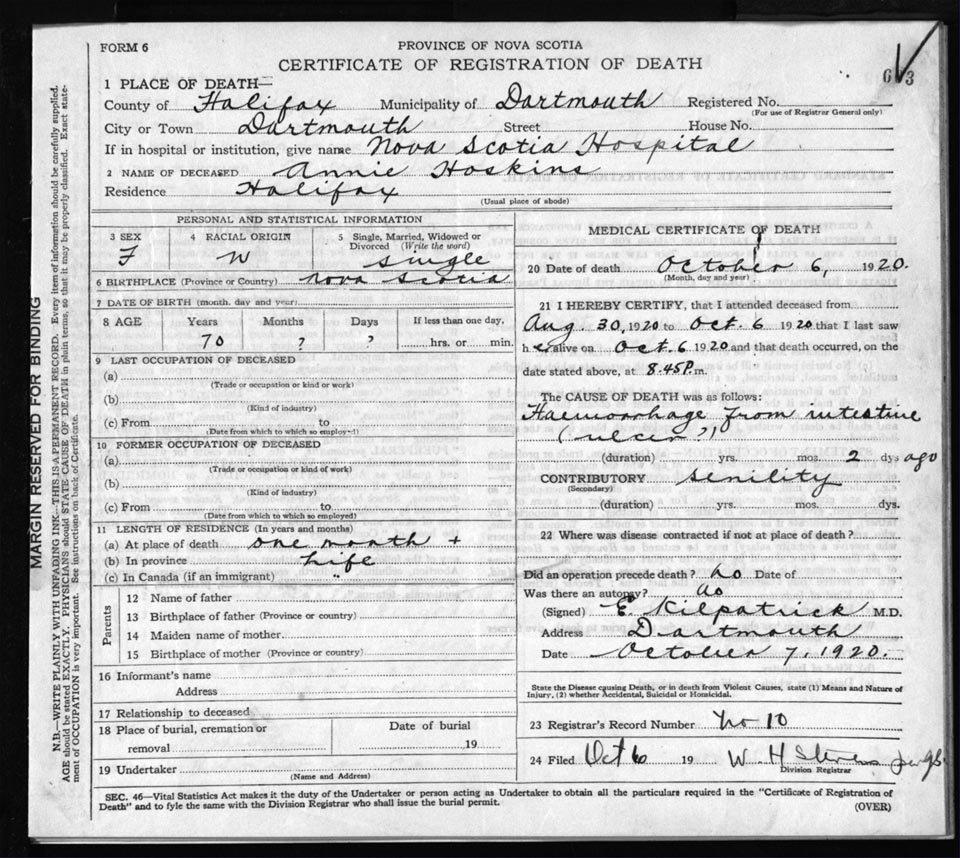 FORM 6
PROVINCE OF NOVA SCOTIA
CERTIFICATE OF REGISTRATION OF DEATH
1 PLACE OF DEATH—
County of Halifax Municipality of Dartmouth Registered No.
(For use of Registrar General only)
City or Town Dartmouth Street House No.
If in hospital or institution, give name Nova Scotia Hospital
2 NAME OF DECEASED Annie Hoskins
Residence Halifax
(Usual place of abode)
PERSONAL AND STATISTICAL INFORMATION
3 SEX 4 RACIAL ORIGIN 5 Single, Married, Widowed or Divorced (Write the word)
F W Single
6 BIRTHPLACE (Province or Country) Nova Scotia
7 DATE OF BIRTH (month, day and year)
8 AGE Years Months Days If less than one day.
70 ? ? hrs. or min.
9 LAST OCCUPATION OF DECEASED
(a)
(Trade or occupation or kind or work)
(b)
(Kind of industry)
(c) From to
(Date from which to which so employed)
10 FORMER OCCUPATION OF DECEASED
(a)
(Trade or occupation or kind of work)
(b)
(Kind of industry)
(c) From to
(Date from which to which so employed)
11 LENGTH OF RESIDENCE (In years and months)
(a) At place of death one month +
(b) In province Life
(c) In Canada (if an immigrant) "
Parents
12 Name of father
13 Birthplace of father (Province or country)
14 Maiden name of mother
15 Birthplace of mother (Province or country)
16 Informant's name
Address
17 Relationship to deceased
18 Place of burial, cremation or removal
Date of burial
19
19 Undertaker
(Name and Address)
MEDICAL CERTIFICATE OF DEATH
20 Date of death October 6, 1920.
(Month, day and year)
21 I HEREBY CERTIFY, that I attended deceased from
Aug. 30, 1920 to Oct. 6 1920 that I last saw
her alive on Oct. 6 1920 and that death occurred, on the
date stated above, at 8.45 P.m.
The CAUSE OF DEATH was as follows:
Haemorrhage from intestine
(ulcer?)
(duration) yrs. mos. 2 dys ago
CONTRIBUTORY senility
(Secondary)
(duration) yrs. mos. dys.
22 Where was disease contracted if not at place of death?
Did an operation precede death? no Date of
Was there an autopsy? no
(Signed) E. Kilpatrick M.D.
Address Dartmouth
Date October 7, 1920.
State the Disease causing Death, or in death from Violent Causes, state (1) Means and Nature of
Injury, (2) whether Accidental, Suicidal or Homicidal.
23 Registrar's Record Number No 10
24 Filed Oct 6 19 W. H
Division Registrar
SEC. 46—Vital Statistics Act makes it the duty of the Undertaker or person acting as Undertaker to obtain all the particulars required in the "Certificate of Registration of
Death" and to fyle the same with the Division Registrar who shall issue the burial permit. (OVER)
MARGIN RESERVED FOR BINDING
N.B.—WRITE PLAINLY WITH UNFADING INK—THIS IS A PERMANENT RECORD. Every item of information should be carefully supplied.
AGE should be stated EXACTLY. PHYSICIANS should STATE CAUSE OF DEATH in plain terms, so that it may be properly classified. Exact state-
ment of OCCUPATION is very important. See instructions on back of Certificate.